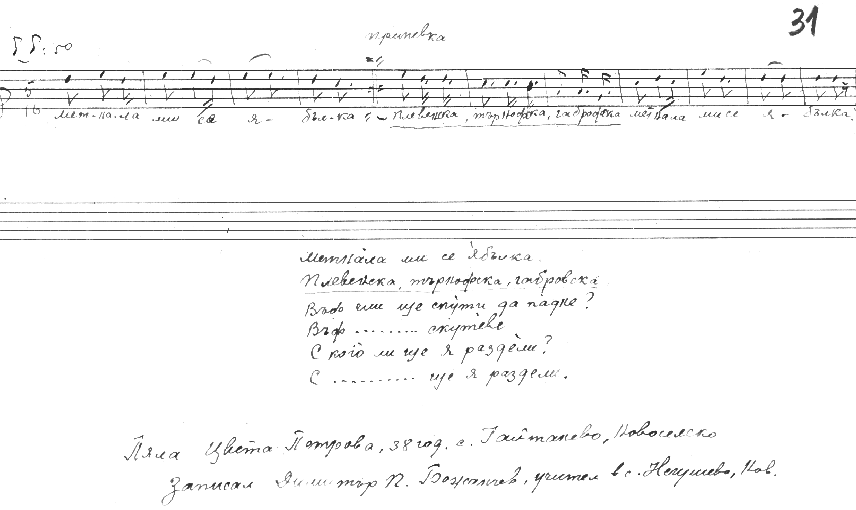 31
припевка
= 50
5
16
мет-на-ла ми се я- бъл-ка плевенска, търнофска, габрофска метнала ми се я- бълка.
Метнала ми се ябълка.
Плевенска, търнофска, габровска
Въф чии ще скути да падне?
Въф ......... скутеве
С кого ли ще я раздели?
С .......... ще я раздели.
Пяла Цвета Петрова, 38 год. с. Гайтанево, Новоселско
Записал Димитър П. , учител в с. Негушево, Нов.